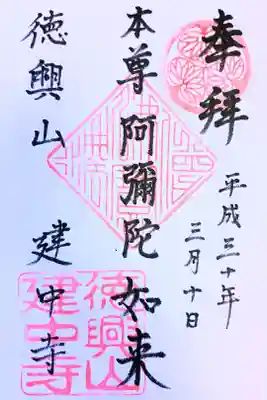 奉拝
平成三十年
三月十日
本尊阿彌陀如来
徳興山 建中寺
徳興山
建中寺